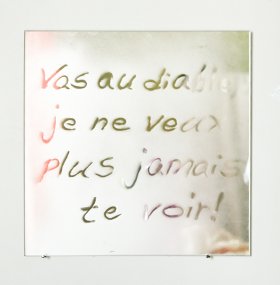 Vas au diable
je ne veux
plus jamais
te voir!